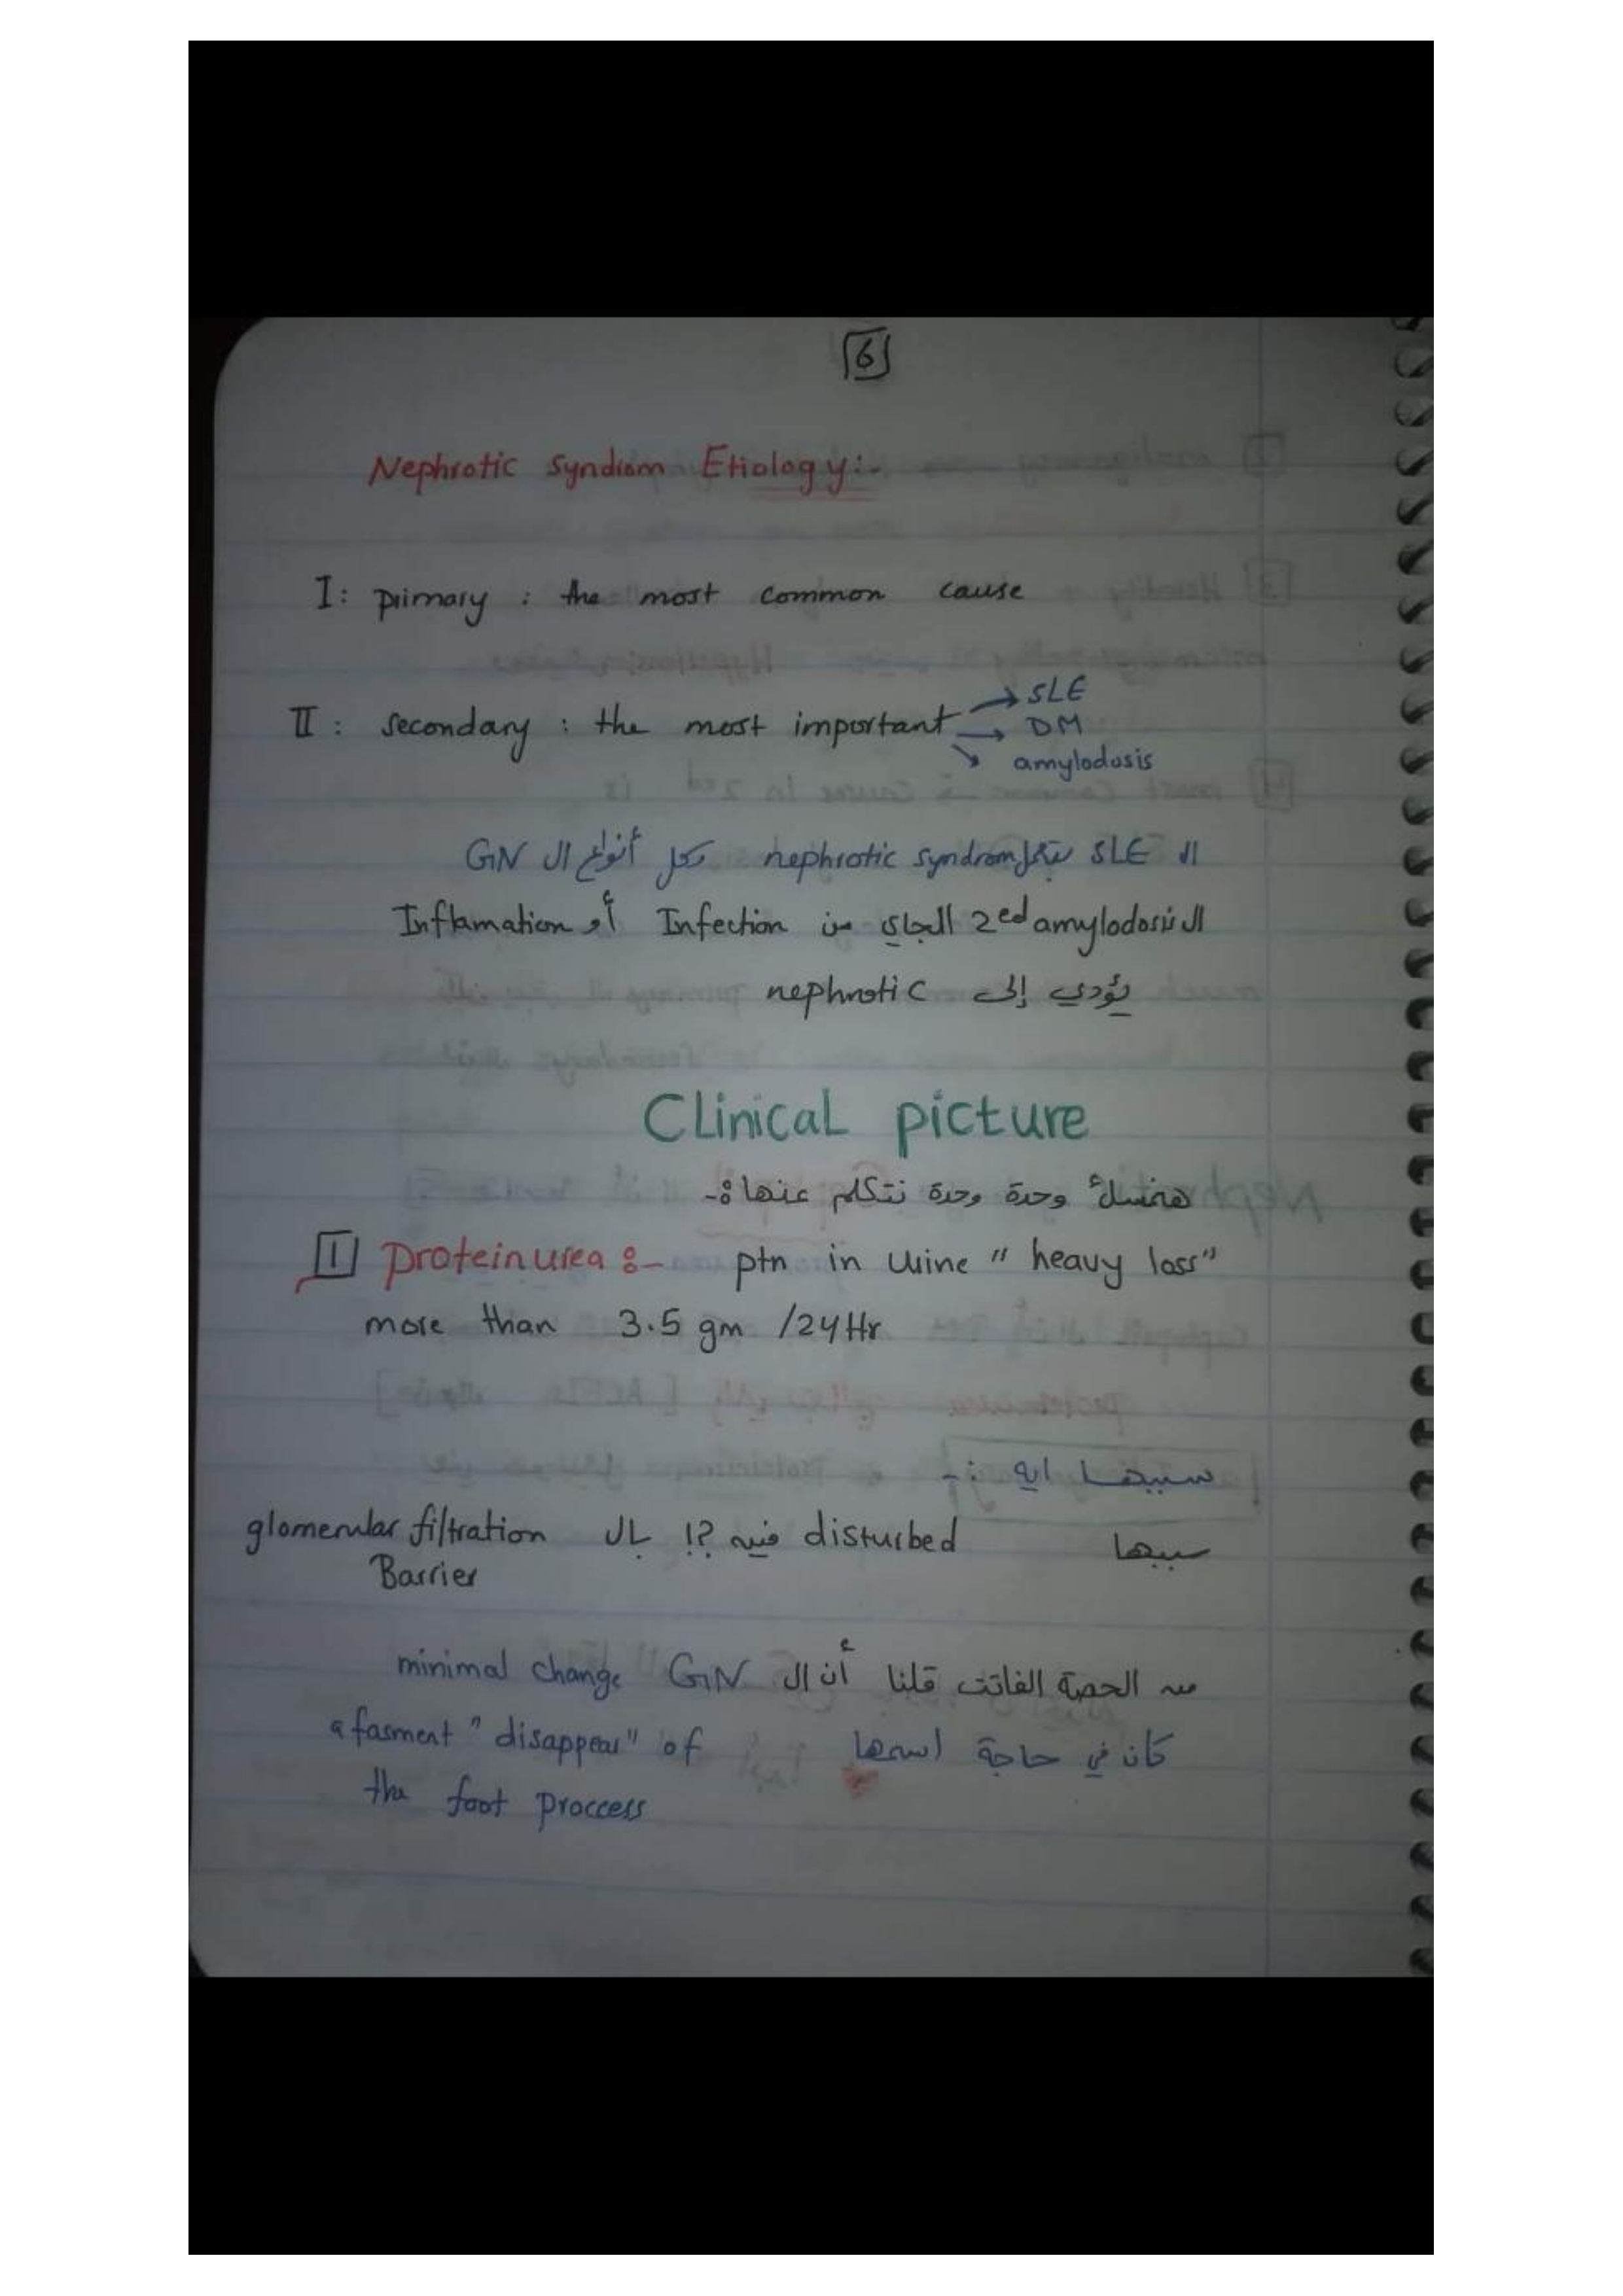 6
Nephrotic Syndrom Etiology:-
I: primary : the most common cause
II : secondary : the most important → SLE
→ DM
→ amylodosis
ال SLE بتعمل nephrotic syndrom وكل أنواع ال GN
ال 2ed amylodosis الجاي من Infection أو Inflamation
يؤدي إلى nephrotic
Clinical picture
هنمسك وحدة وحدة نتكلم عنها :-
1 proteinurea :- ptn in urine " heavy loss"
more than 3.5 gm /24Hr
سببها ايه :-
سببها disturbed فيه ?! بال glomerular filtration
Barrier
من الحصة الفاتت قلنا أن ال minimal change GN
كان في حاجة اسمها afasment " disappear" of
the foot proccess